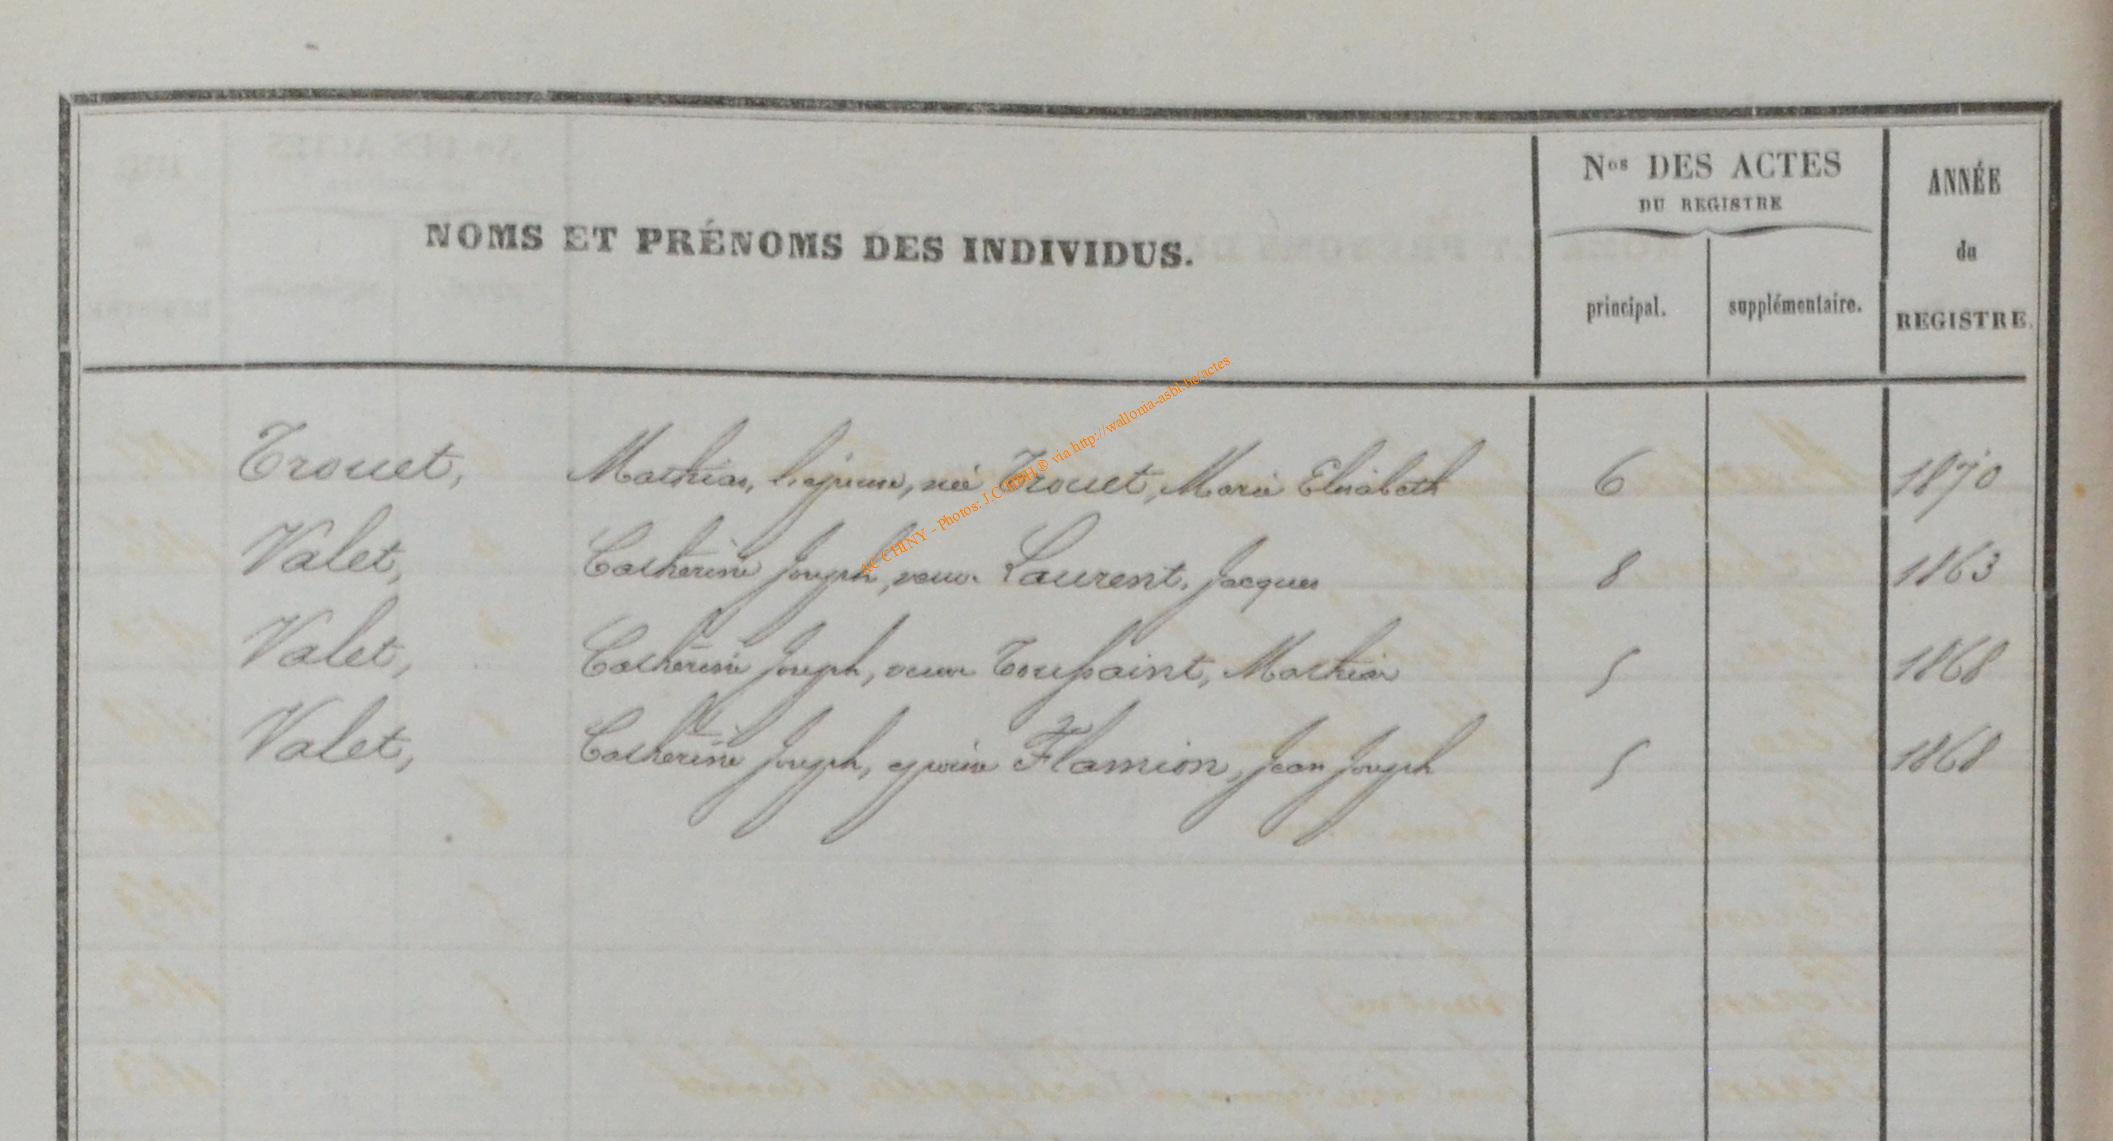 NOMS ET PRÉNOMS DES INDIVIDUS.
Nos DES ACTES
DU REGISTRE
principal.
supplémentaire.
ANNÉE
du
REGISTRE.
Trouet, Mathias, née Trouet, Marie Elisabeth 6 1870
Valet, Catherine Joseph, veuve Laurent, Jacques 8 1863
Valet, Catherine Joseph, veuve Toussaint, Mathias 5 1868
Valet, Catherine Joseph, épouse Flamion, Jean Joseph 5 1868
AC CHINY - Photos: J.C. via http://wallonia-asbl.be/actes